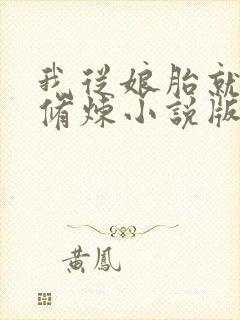 我從娘胎就
脩煉小說版
黃鳳